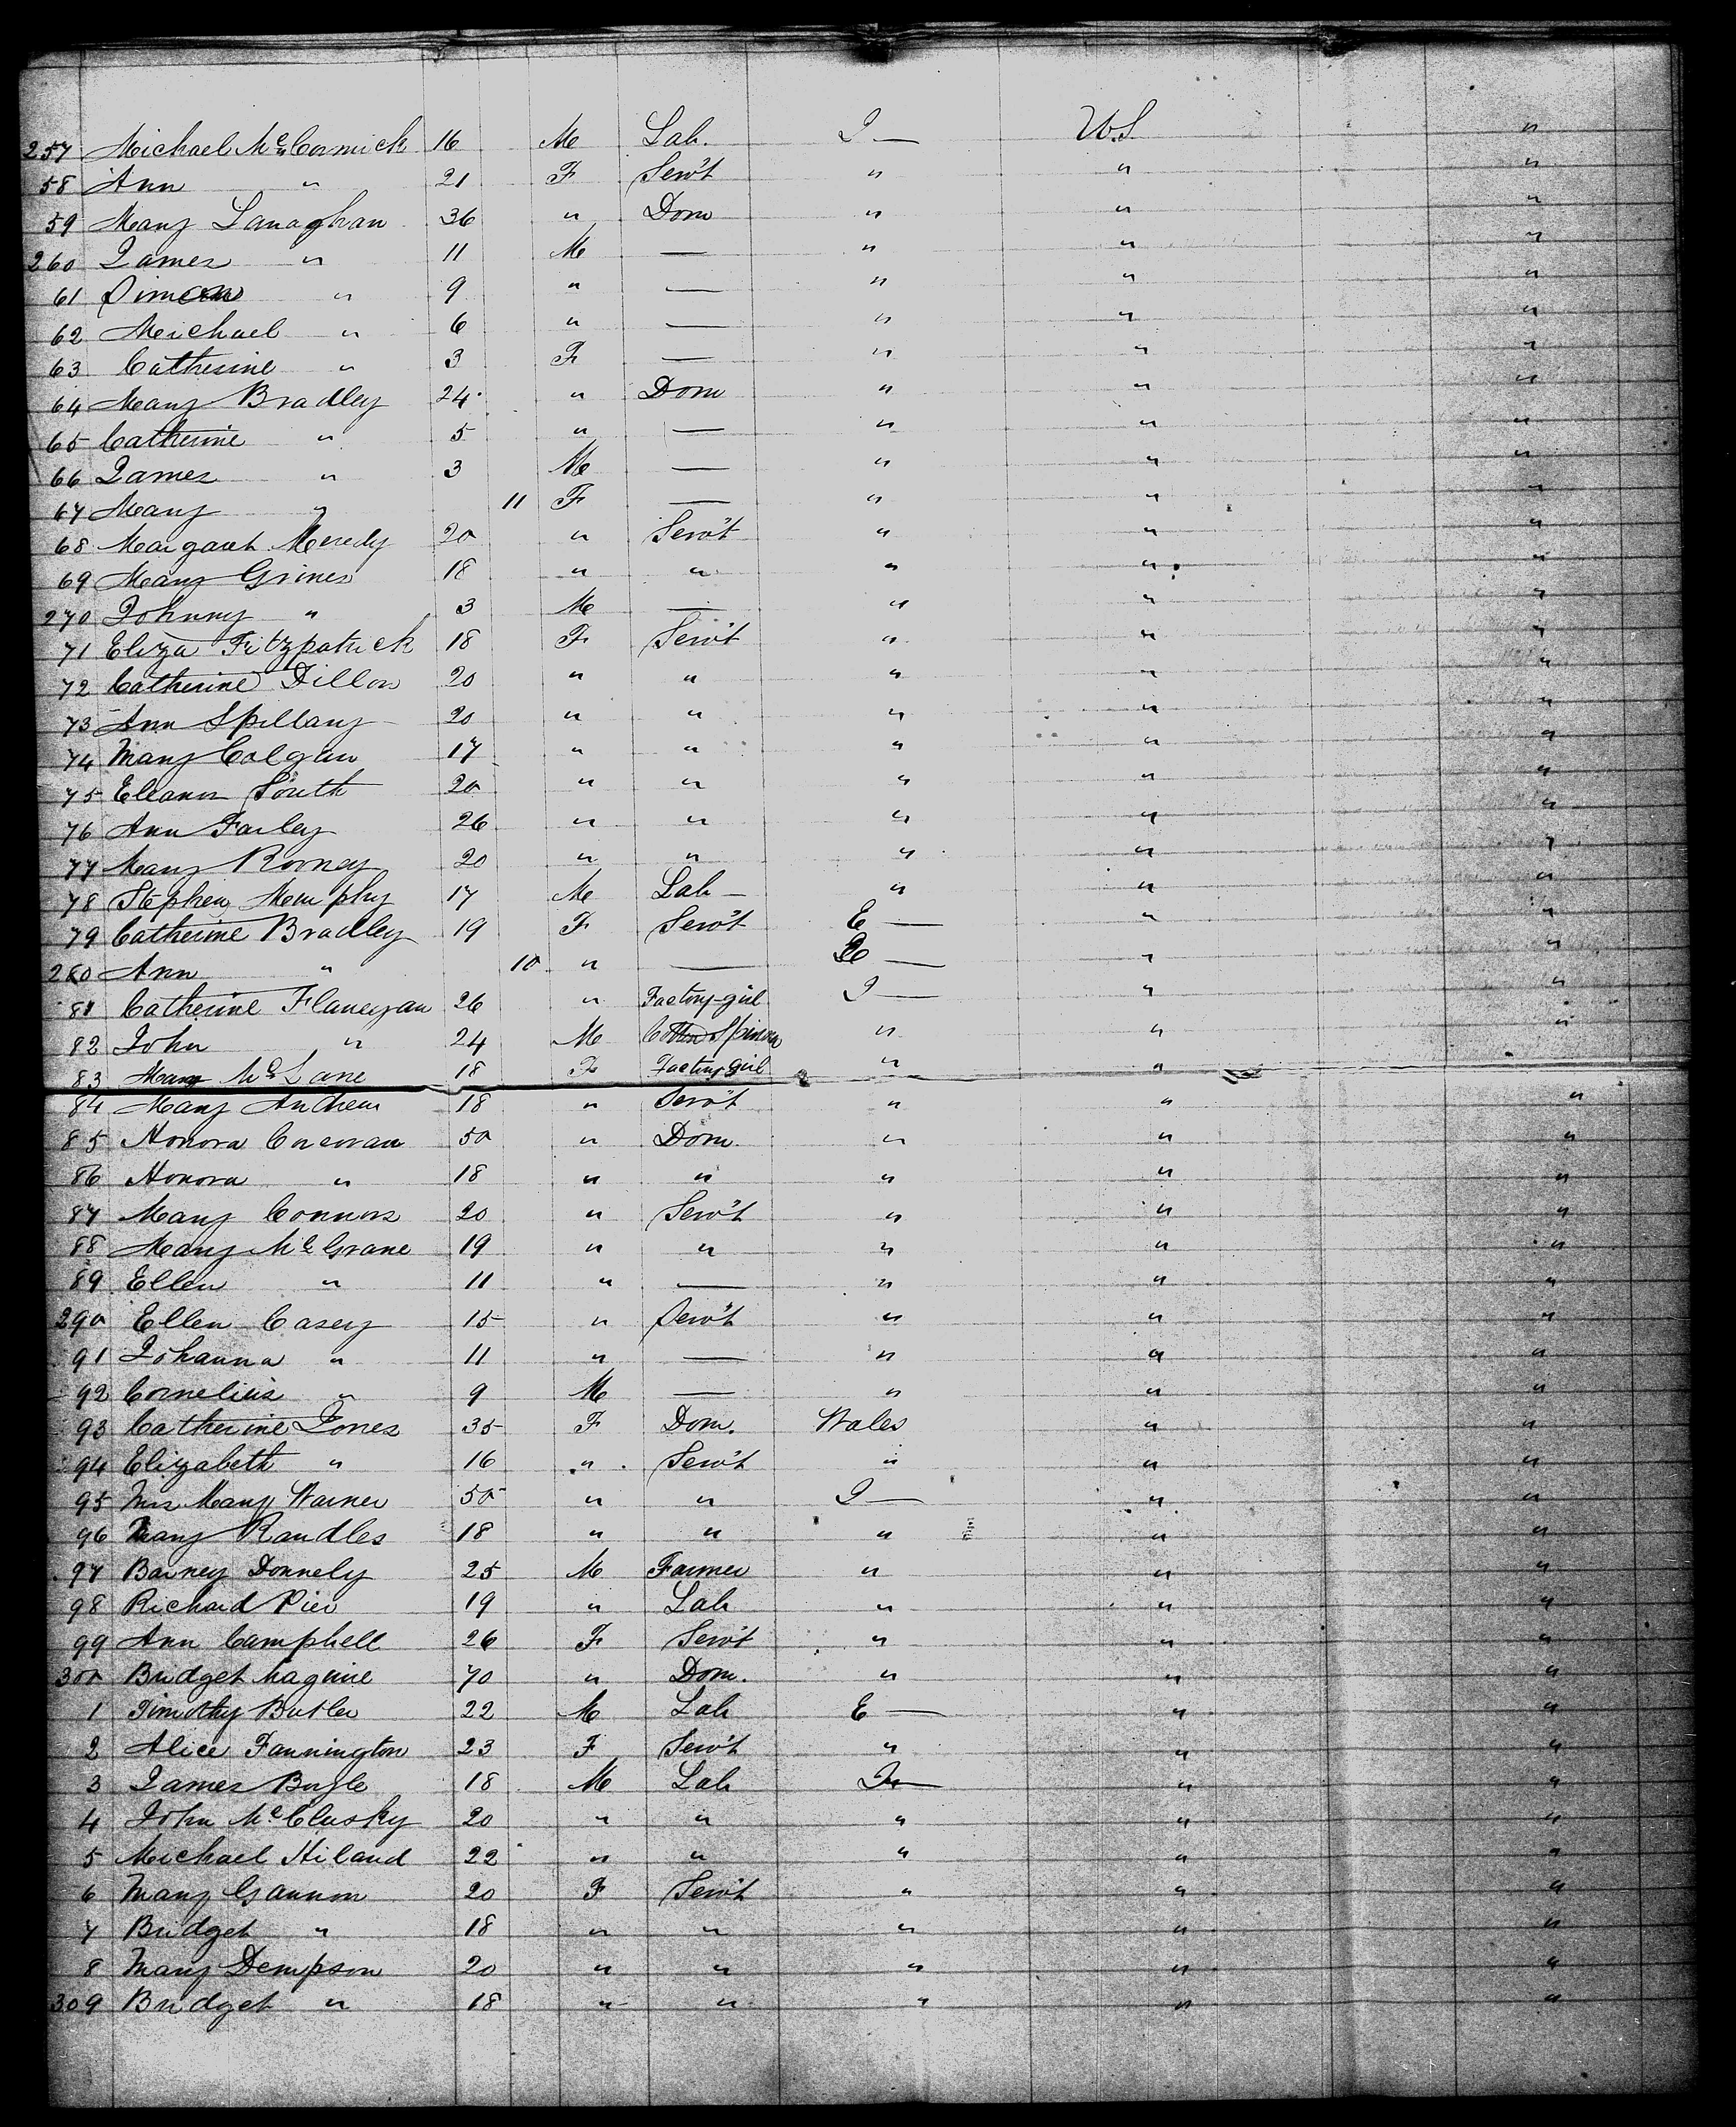 257 Michael McCormick 16 M Lab. I — U.S. "
58 Ann " 21 F Serv't " " "
59 Mary Lanaghan 36 " Dom " " "
260 James " 11 M — " " "
61 Simon " 9 " — " " "
62 Michael " 6 " — " " "
63 Catherine " 3 F — " " "
64 Mary Bradley 24 " Dom " " "
65 Catherine " 5 " — " " "
66 James " 3 M — " " "
67 Mary " 11 F — " " "
68 Margaret Meredy 20 " Serv't " " "
69 Mary Grimes 18 " " " " "
270 Johnny " 3 M — " " "
71 Eliza Fitzpatrick 18 F Serv't " " "
72 Catherine Dillon 20 " " " " "
73 Ann Spillany 20 " " " " "
74 Mary Colgan 17 " " " " "
75 Eleanor South 20 " " " " "
76 Ann Farley 26 " " " " "
77 Mary Rooney 20 " " " " "
78 Stephen Murphy 17 M Lab — " " "
79 Catherine Bradley 19 F Serv't E — " "
280 Ann " 10 " — E — " "
81 Catherine Flanegan 26 " Factory-girl I — " "
82 John " 24 M Cotton Spinner " " "
83 Mary McLane 18 F Factory girl " " "
84 Mary Andrew 18 " Serv't " " "
85 Honora Corcoran 50 " Dom. " " "
86 Honora " 18 " " " " "
87 Mary Connors 20 " Serv't " " "
88 Mary McGrane 19 " " " " "
89 Ellen " 11 " — " " "
290 Ellen Casey 15 " Serv't " " "
91 Johanna " 11 " — " " "
92 Cornelius " 9 M — " " "
93 Catherine Jones 35 F Dom. Wales " "
94 Elizabeth " 16 " Serv't " " "
95 Mrs Mary Warner 50 " " I — " "
96 Mary Randles 18 " " " " "
97 Barney Donnely 25 M Farmer " " "
98 Richard Pier 19 " Lab " " "
99 Ann Campbell 26 F Serv't " " "
300 Bridget Maguire 70 " Dom. " " "
1 Timothy Butler 22 M Lab E — " "
2 Alice Fannington 23 F Serv't " " "
3 James Bogle 18 M Lab I — " "
4 John McClusky 20 " " " " "
5 Michael Hiland 22 " " " " "
6 Mary Gannon 20 F Serv't " " "
7 Bridget " 18 " " " " "
8 Mary Dempson 20 " " " " "
309 Bridget " 18 " " " " "